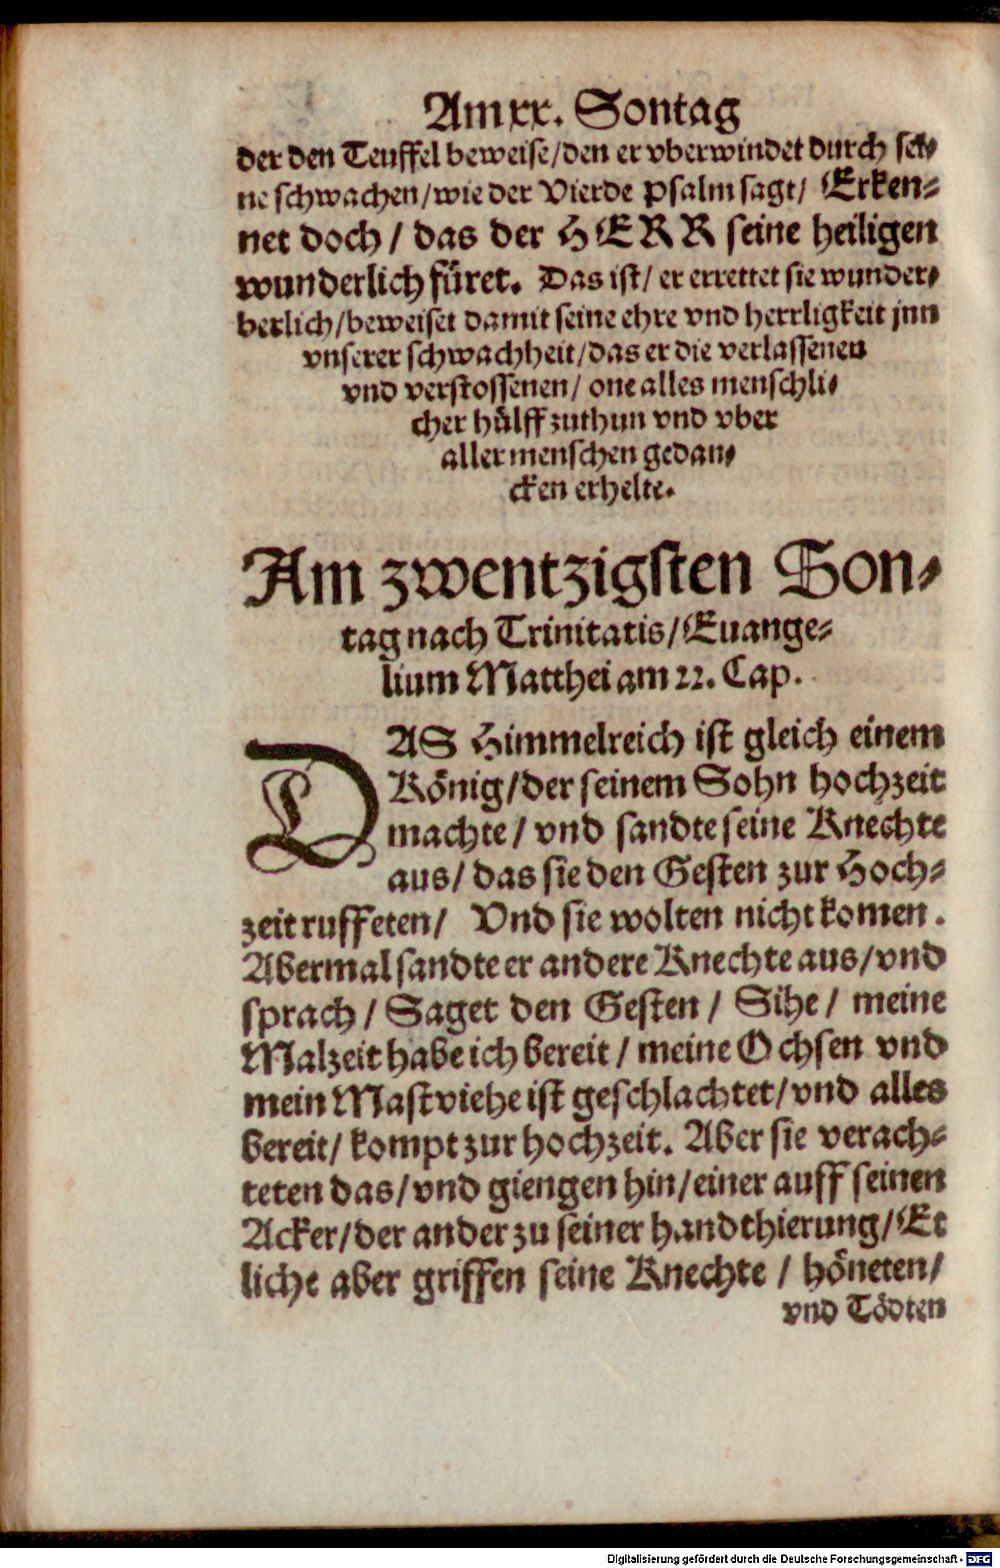 Am xx. Sontag
der den Teuffel beweise/den er vberwindet durch sei⸗
ne schwachen/wie der Vierde Psalm sagt/ Erken⸗
net doch/ das der HERR seine heiligen
wunderlich füret. Das ist/ er errettet sie wunder⸗
berlich/beweiset damit seine ehre vnd herrligkeit jnn
vnserer schwachheit/das er die verlassenen
vnd verstossenen/ one alles menschli⸗
cher hülff zuthun vnd vber
aller menschen gedan⸗
cken erhelte.
Am zwentzigsten Son⸗
tag nach Trinitatis/Euange⸗
lium Matthei am 22. Cap.
DAS Himmelreich ist gleich einem
König/der seinem Sohn hochzeit
machte/ vnd sandte seine Knechte
aus/ das sie den Gesten zur Hoch⸗
zeit ruffeten/ Vnd sie wolten nicht komen.
Abermal sandte er andere Knechte aus/vnd
sprach/ Saget den Gesten/ Sihe/ meine
Malzeit habe ich bereit/ meine Ochsen vnd
mein Mastviehe ist geschlachtet/vnd alles
bereit/ kompt zur hochzeit. Aber sie verach⸗
teten das/vnd giengen hin/einer auff seinen
Acker/der ander zu seiner handthierung/Et
liche aber griffen seine Knechte/ höneten/
vnd Tödten
Digitalisierung gefördert durch die Deutsche Forschungsgemeinschaft - DFG